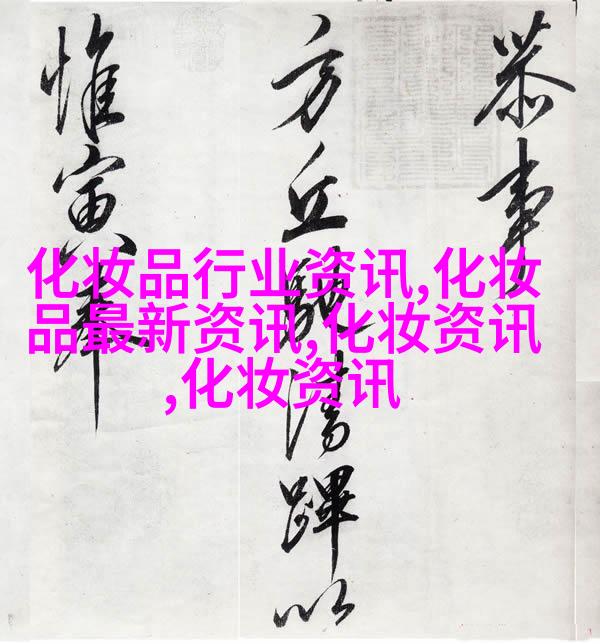 恭事
方丘清蹕以
惟寅
化妆品行业资讯,化妆
品最新资讯,化妆资讯
,化妆资讯